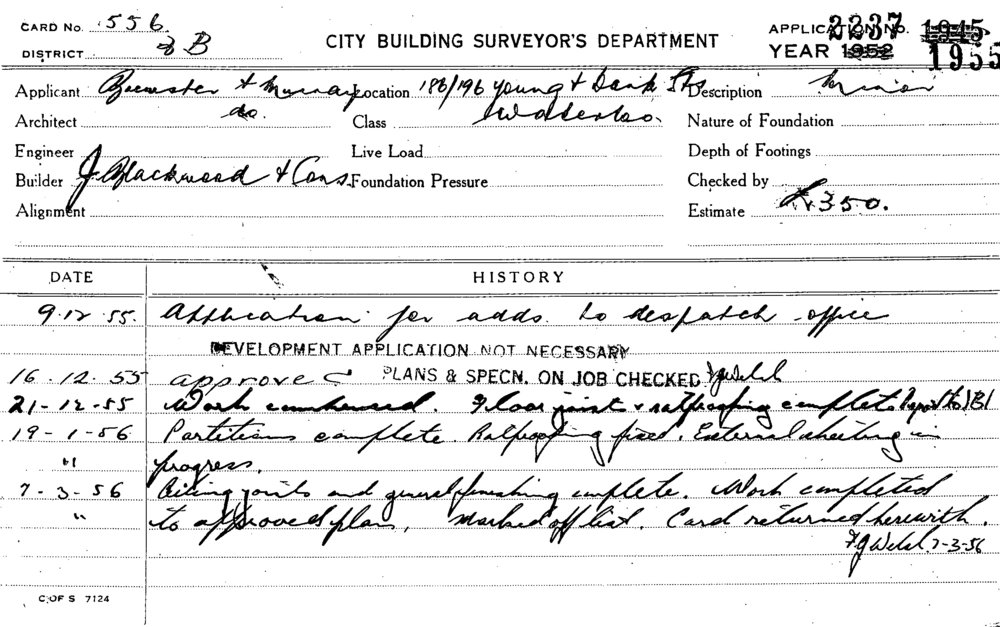 CARD No. 556
DISTRICT B
CITY BUILDING SURVEYOR'S DEPARTMENT
APPLICATION NO. 2237 1945
YEAR 1952 1955
Applicant Brewster & Murray Location 186/196 Young & Dank Sts Description Minor
Architect do. Class Waterloo. Nature of Foundation
Engineer Live Load Depth of Footings
Builder J. Blackwood & Cons. Foundation Pressure Checked by
Alignment Estimate £350.
DATE HISTORY
9.12.55. Application for adds. to despatch office
DEVELOPMENT APPLICATION NOT NECESSARY
16.12.55 approved PLANS & SPECN. ON JOB CHECKED FJWelsh
21-12-55 Work commenced. Floor joist & ratproofing complete Report to
19-1-56 Partitions complete. Ratproofing fixed. External sheeting in
" progress.
7-3-56 Ceiling joists and general finishing complete. Work completed
" to approved plan. Marked off list. Card returned herewith.
FJWelsh. 7-3-56
C. OF S 7124